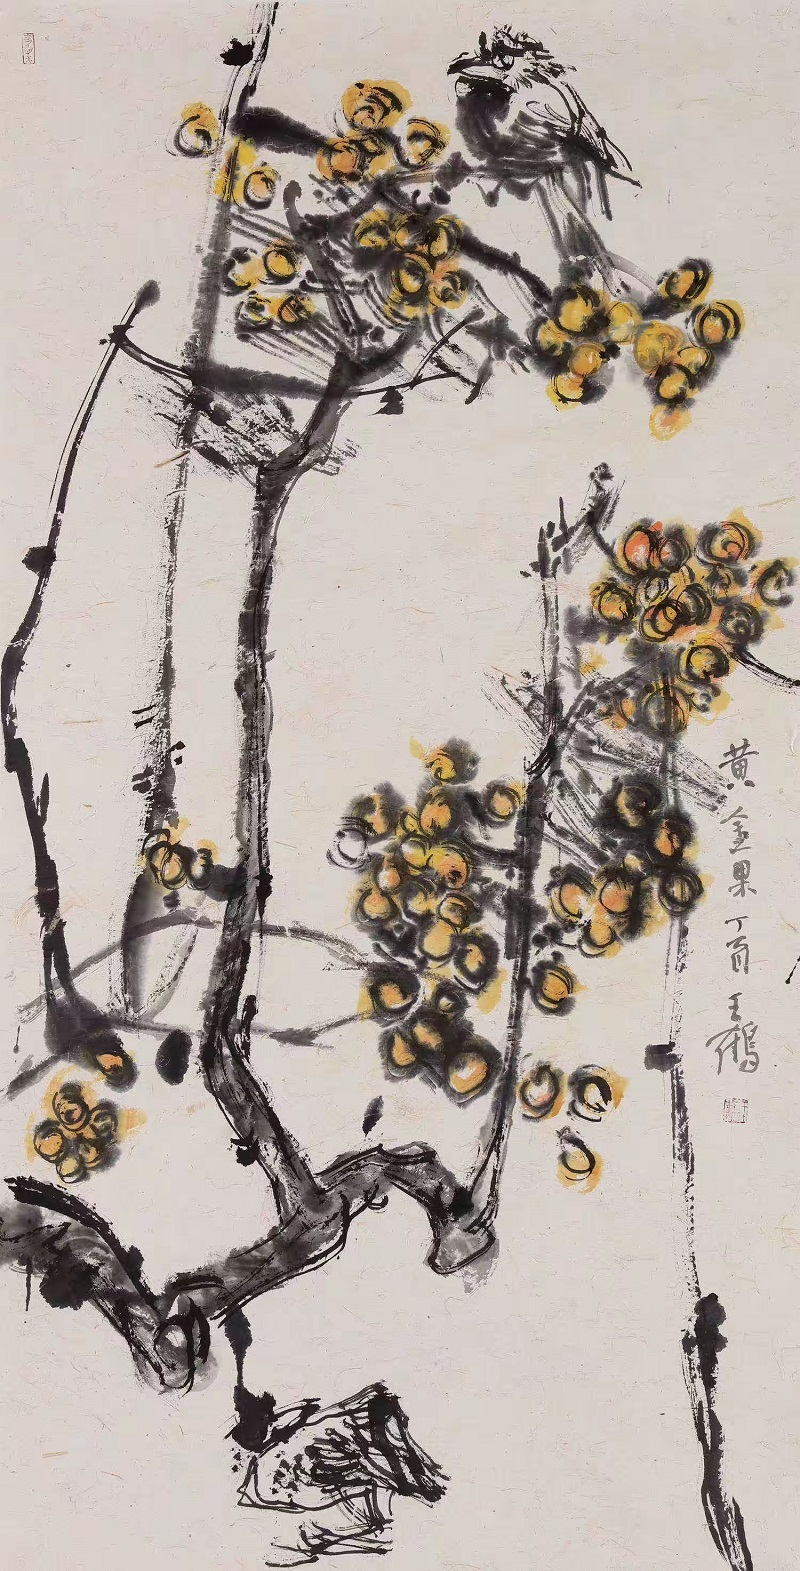 黄金果丁酉王鹤